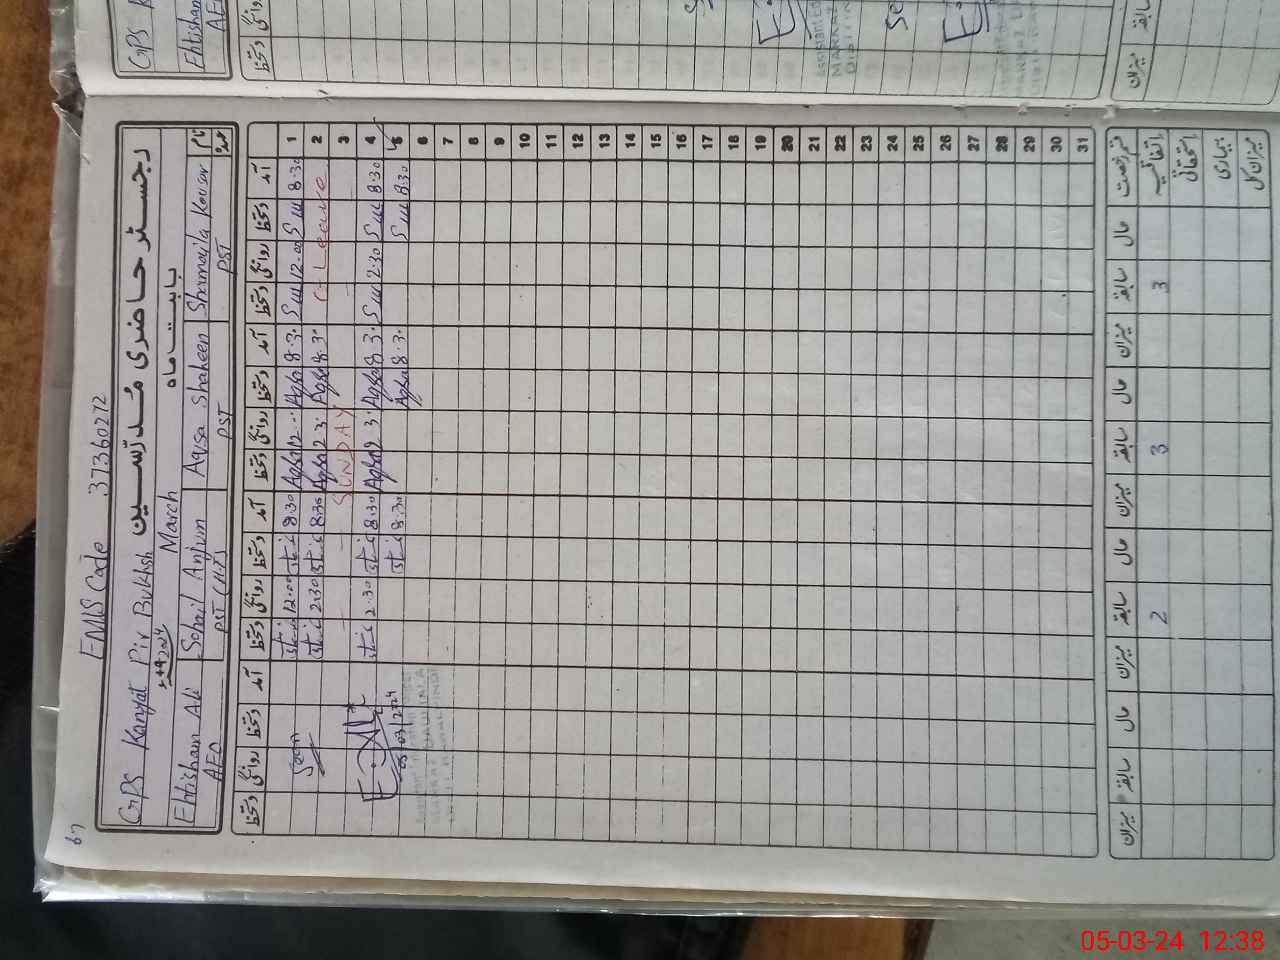 67
EMIS Code 37360272
GPS Kanyat Pir Bukhsh رجسٹر حاضری مدرسین
2024 March بابت ماہ
Ehtisham Ali Sohail Anjum Aqsa Shaheen Shamaila Kousar نام
AEO PST (HT) PST PST عہدہ
دستخط روانگی دستخط آمد دستخط روانگی دستخط آمد دستخط روانگی دستخط آمد دستخط روانگی دستخط آمد
Seen 12.00 8:30 Aqsa 12.. Aqsa 8.3. 12.00 8:30 1
2.30 8:30 Aqsa 2 3. Aqsa 8.3. C-Leave 2
SUNDAY 3
2.30 8:30 Aqsa 2 3. Aqsa 8.3. 2.30 8.30 4
05/03/2024 8:30 Aqsa 8.3. 8:30 5
6
7
8
9
10
11
12
13
14
15
16
17
18
19
20
21
22
23
24
25
26
27
28
29
30
31
میزان سابقہ حال میزان سابقہ حال میزان سابقہ حال میزان سابقہ حال قسم رخصت
2 3 3 اتفاقیہ
استحقاقی
بیماری
میزان کل
05-03-24 12:38